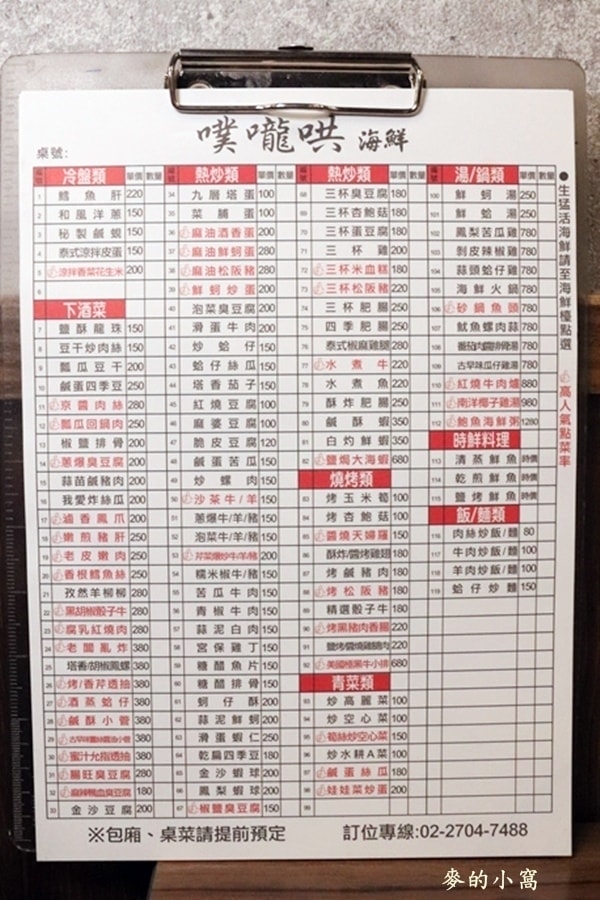 噗嚨哄 海鮮
桌號:
編號 冷盤類 單價 數量
1 鱈魚肝 220
2 和風洋蔥 150
3 秘製鹹蜆 150
4 泰式涼拌皮蛋 150
5 涼拌香菜花生米 200
6
下酒菜
7 鹽酥龍珠 150
8 豆干炒肉絲 150
9 瓜豆干 200
10 鹹蛋四季豆 250
11 京醬肉絲 280
12 瓜回鍋肉 250
13 椒鹽排骨 200
14 蔥爆臭豆腐 200
15 蒜苗鹹豬肉 220
16 我愛炸絲瓜 150
17 滷香鳳爪 200
18 嫩煎豬肝 250
19 老皮嫩肉 250
20 香根鱈魚絲 250
21 孜然羊柳柳 280
22 黑胡椒骰子牛 280
23 腐乳紅燒肉 280
24 老闆亂炸 380
25 塔香/胡椒鳳螺 380
26 烤/香芹透抽 380
27 酒蒸蛤仔 280
28 鹹酥小管 380
29 古早味薑絲醬油小管 380
30 蜜汁允指透抽 380
31 腸旺臭豆腐 280
32 麻辣鴨血臭豆腐 220
33 金沙豆腐 200
編號 熱炒類 單價 數量
34 九層塔蛋 100
35 菜脯蛋 100
36 麻油酒香蛋 200
37 麻油鮮蚵蛋 280
38 麻油松阪豬 280
39 鮮蚵炒蛋 200
40 泡菜臭豆腐 200
41 滑蛋牛肉 200
42 炒蛤仔 150
43 蛤仔絲瓜 150
44 塔香茄子 150
45 紅燒豆腐 100
46 麻婆豆腐 100
47 脆皮豆腐 120
48 鹹蛋苦瓜 150
49 炒螺肉 150
50 沙茶牛/羊 150
51 蔥爆牛/羊/豬 150
52 泡菜牛/羊/豬 150
53 芹菜爆炒牛/羊/豬 200
54 糯米椒牛/豬 150
55 苦瓜牛肉 150
56 青椒牛肉 150
57 蒜泥白肉 150
58 宮保雞丁 150
59 糖醋魚片 150
60 糖醋排骨 150
61 蚵仔酥 200
62 蒜泥鮮蚵 200
63 滑蛋蝦仁 250
64 乾扁四季豆 180
65 金沙蝦球 200
66 鳳梨蝦球 200
67 椒鹽臭豆腐 150
編號 熱炒類 單價 數量
68 三杯臭豆腐 180
69 三杯杏鮑菇 180
70 三杯蛋豆腐 180
71 三杯雞 200
72 三杯米血糕 180
73 三杯松阪豬 220
74 三杯肥腸 250
75 四季肥腸 250
76 泰式椒麻雞腿 280
77 水煮牛 220
78 水煮魚 220
79 酥炸肥腸 250
80 鹹酥蝦 350
81 白灼鮮蝦 350
82 鹽焗大海蝦 680
燒烤類
83 烤玉米筍 100
84 烤杏鮑菇 100
85 醬燒天婦羅 150
86 酥炸/醬烤雞翅 180
87 烤鹹豬肉 180
88 烤松阪豬 180
89 精選骰子牛 180
90 烤黑豬肉香腸 220
91 鹽烤/醬燒雞腿肉 220
92 美國極黑牛小排 680
青菜類
93 炒高麗菜 100
94 炒空心菜 100
95 筍絲炒空心菜 150
96 炒水耕A菜 100
97 鹹蛋絲瓜 180
98 娃娃菜炒蛋 200
99
編號 湯/鍋類 單價 數量
100 鮮蚵湯 250
101 鮮蛤湯 250
102 鳳梨苦瓜雞 780
103 剝皮辣椒雞 780
104 蒜頭蛤仔雞 780
105 海鮮火鍋 780
106 砂鍋魚頭 780
107 魷魚螺肉蒜 780
108 番茄肉醬排骨湯 780
109 古早味瓜仔雞湯 780
110 紅燒牛肉爐 880
111 南洋椰子雞湯 980
112 鮑魚海鮮粥 1280
時鮮料理
113 清蒸鮮魚 時價
114 乾煎鮮魚 時價
115 鹽烤鮮魚 時價
飯/麵類
116 肉絲炒飯/麵 80
117 牛肉炒飯/麵 100
118 羊肉炒飯/麵 100
119 蛤仔炒麵 150
●生猛活海鮮請至海鮮檯點選
高人氣點菜率
※包廂、桌菜請提前預定
訂位專線:02-2704-7488
麥的小窩